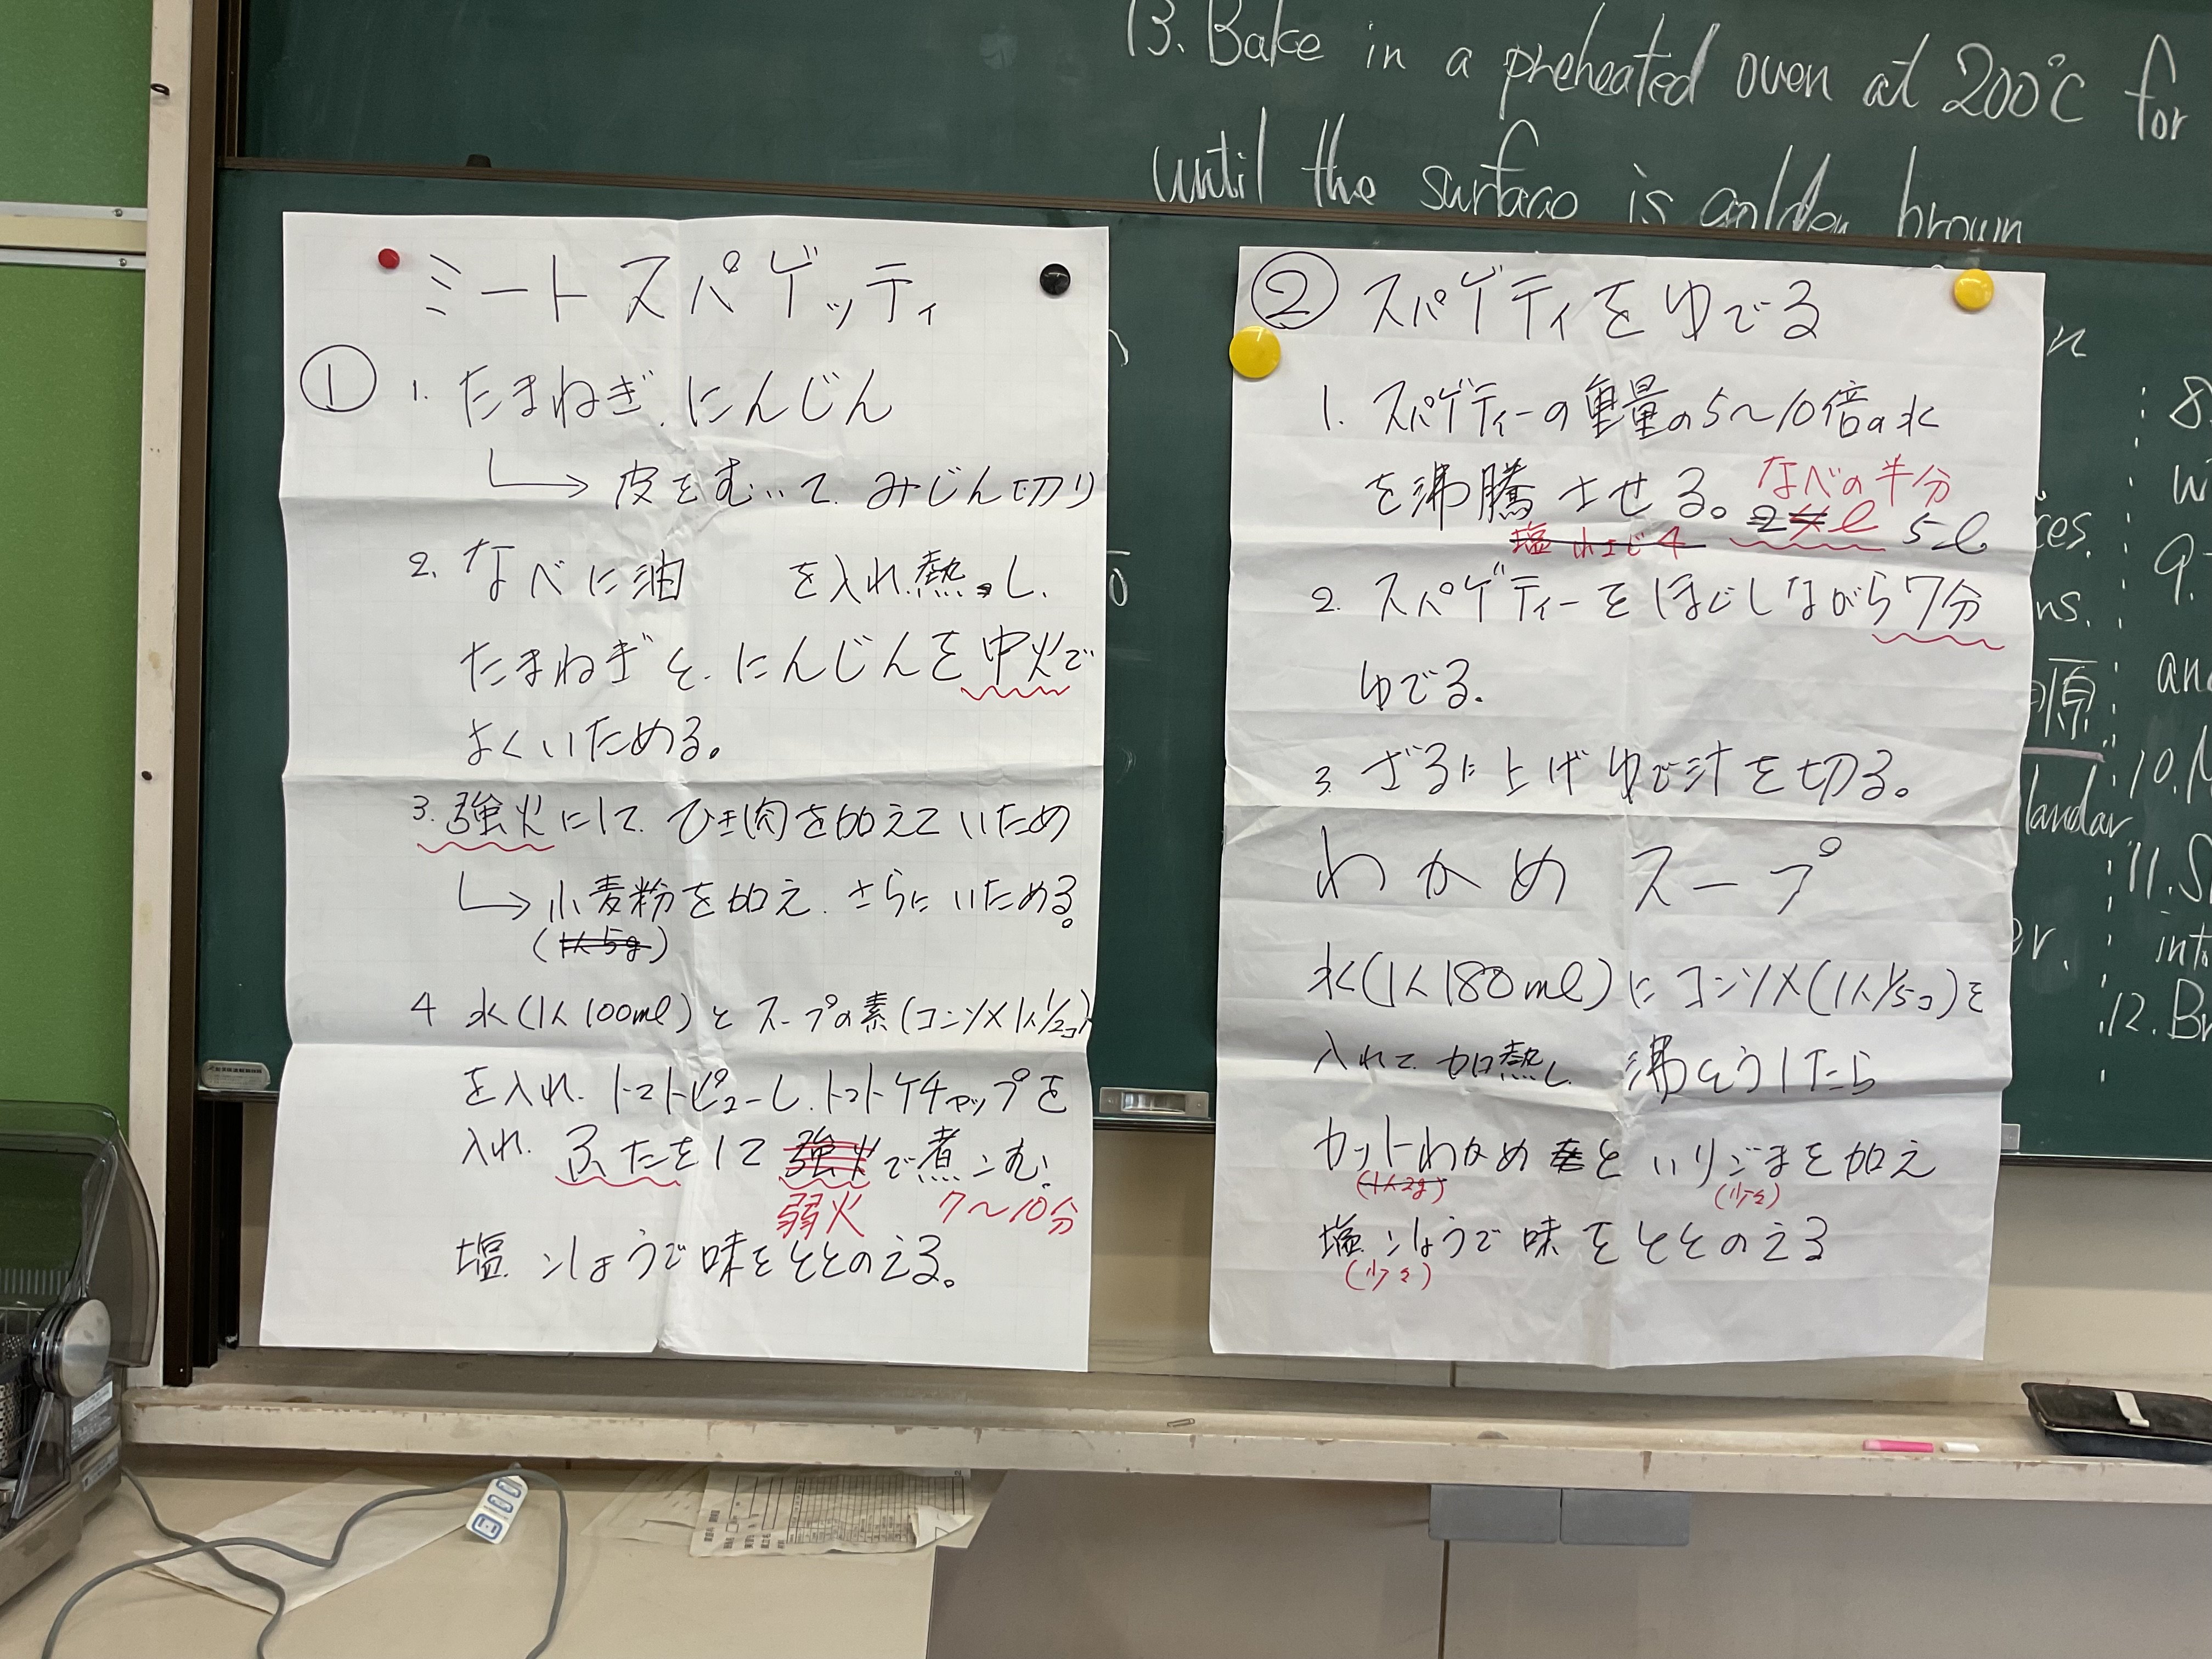 13. Bake in a preheated oven at 200°C for
until the surface is golden brown
ミートスパゲッティ
① 1. たまねぎ、にんじん
→ 皮をむいて、みじん切り
2. なべに油 を入れ、熱し、
たまねぎと、にんじんを中火で
よくいためる。
3. 強火にして、ひき肉を加えていため
→ 小麦粉を加え、さらにいためる。
(1人5g)
4 水(1人100ml)とスープの素(コンソメ1人1/2コ)
を入れ、トマトピューレ、トマトケチャップを
入れ、ふたをして 強火で煮こむ。
弱火 7〜10分
塩、こしょうで味をととのえる。
② スパゲティをゆでる
1. スパゲティーの重量の5〜10倍の水
を沸騰させる。なべの半分
塩 2 ℓ 5ℓ
2. スパゲティーをほぐしながら7分
ゆでる。
3. ざるに上げゆで汁を切る。
わかめスープ
水(1人180ml)にコンソメ(1人1/5コ)を
入れて、加熱し、沸とうしたら
カットわかめといりごまを加え
(1人2g) (少々)
塩、こしょうで味をととのえる
(少々)
8.
9.
10.
11.
12.